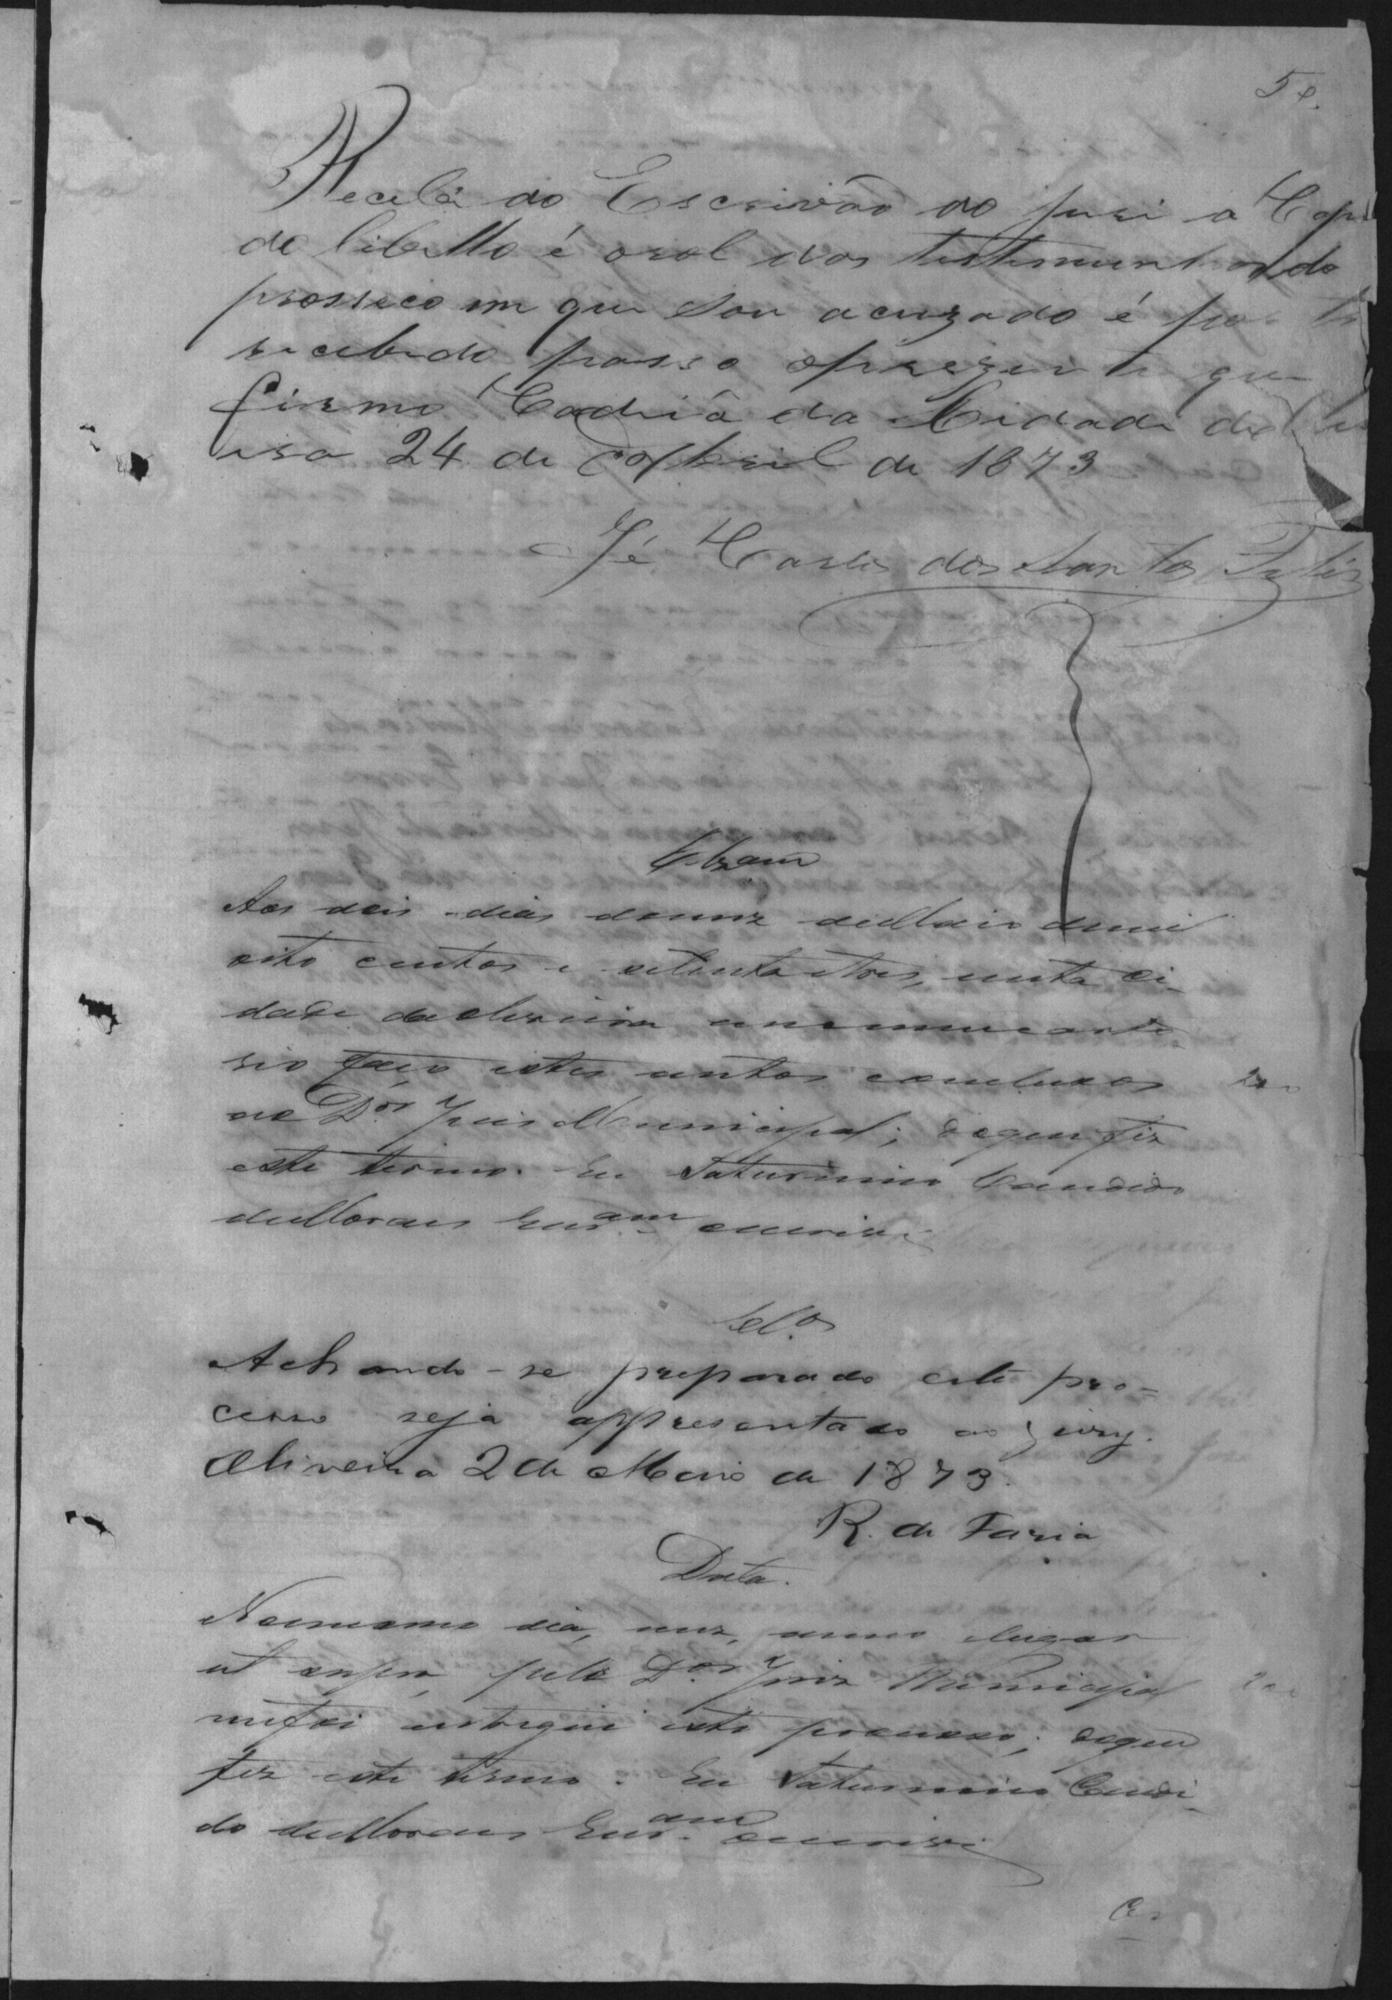 50.
Recebi do Escrivão do juri a Copi
do libello é arol das testemunhas do
prosseco em que sou acuzado é por ter
recebido passo oprezente que
firmo Cadeiâ da Cidade de Oli
veira 24 de Abril de 1873
Jé Carlos dos Santos
Clzam
Aos dois dias domez deMaio demil
oito centos e setenta etres, nesta ci-
dade da oliveira em meu carto-
rio faço estes autos conclusos
ao Dor. Juis Municipal; doque fiz
este termo. Eu Saturnino Candido
deMoraes Escam escrivi
Selos
Achando-se preparado este pro-
cesso seja appresentado ao jury.
Oliveira 2 de Maio de 1873.
R. de Faria
Data.
Nomesmo dia, mez, anno elugar
ut supra, pelo Dor. Juiz Municipal
mefoi entregue este processo; doque
fiz este termo. Eu Saturnino Candi-
do deMoraes Escam escrivi